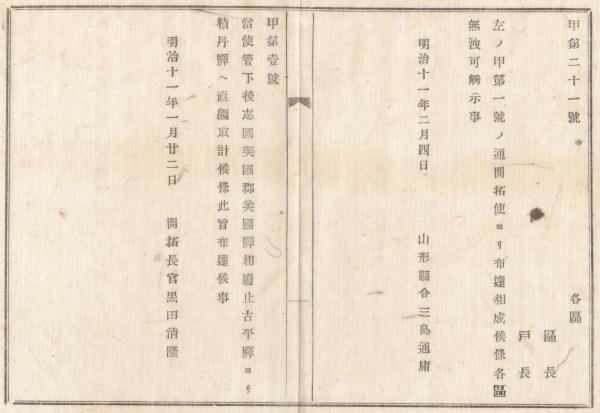 甲第二十一號
各區
區長
戸長
左ノ甲第一號ノ通開拓使ヨリ布達相成候條各區
無洩可觸示事
明治十一年二月四日
山形縣令三島通庸
甲第壹號
當使管下後志國美國郡美國驛相廢止古平驛ヨリ
積丹驛ヘ直繼取計候條此旨布達候事
明治十一年一月廿二日
開拓長官黒田清隆